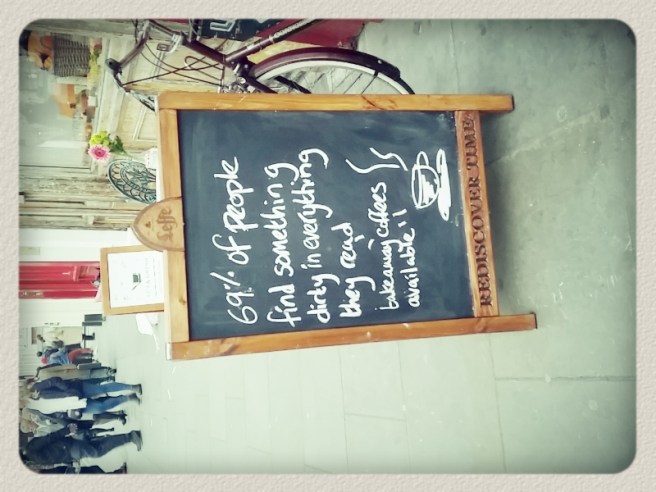 Leffe
69% of people
find something
dirty in everything
they read
takeaway coffees
available!!
REDISCOVER TIME